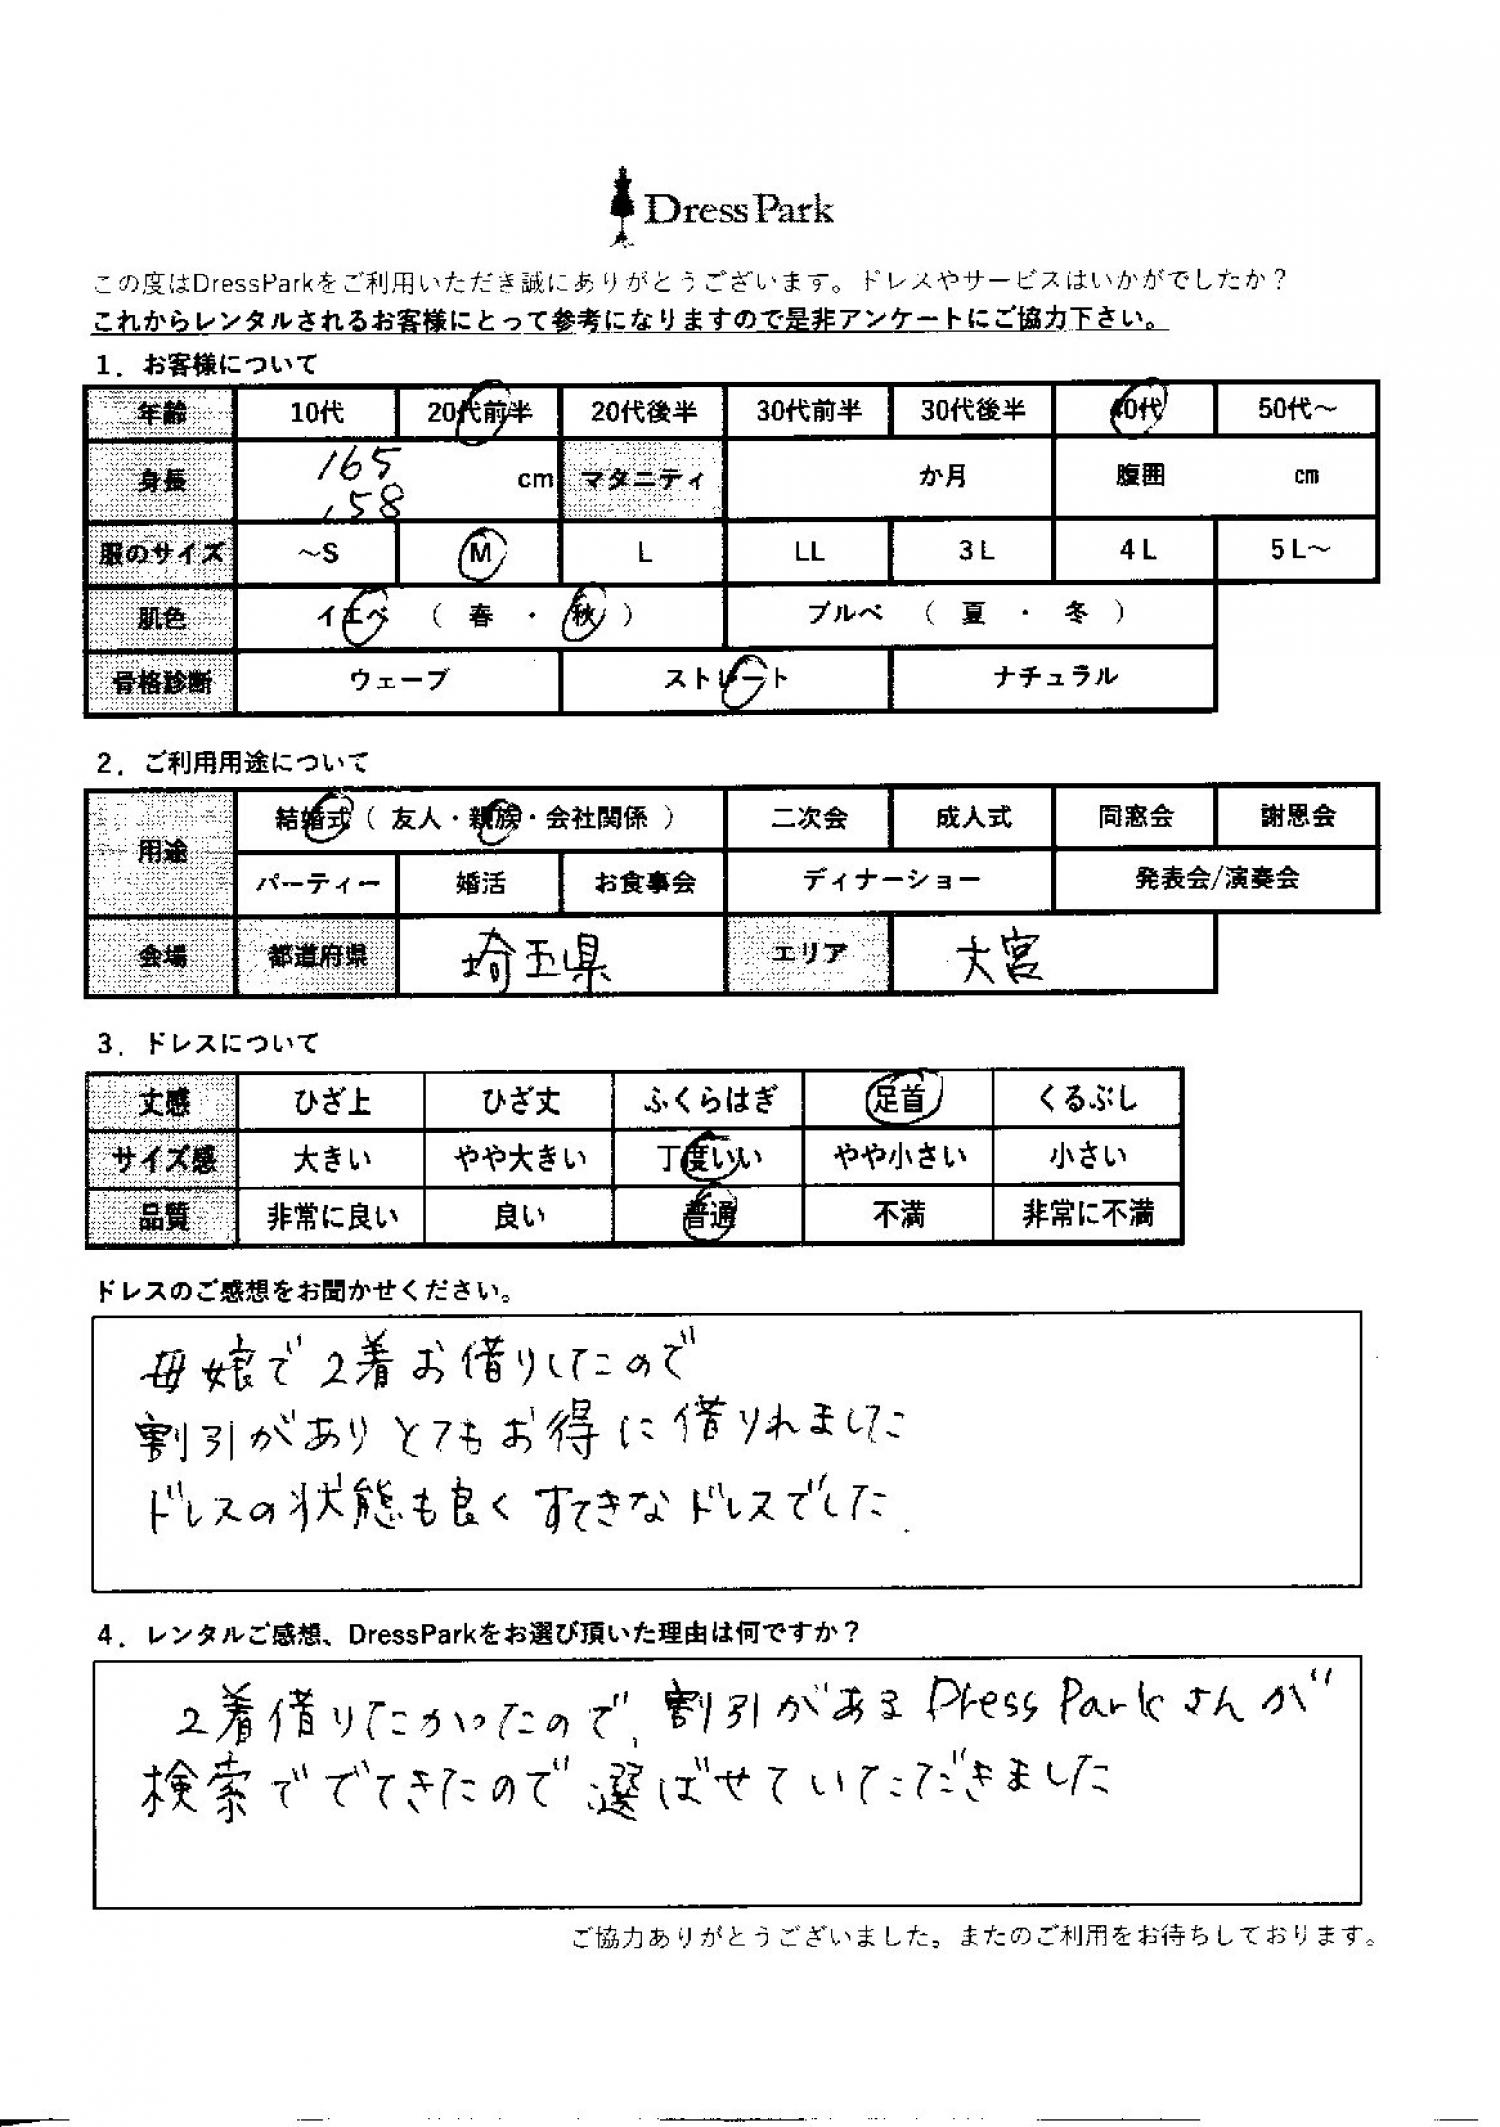 Dress Park
この度はDressParkをご利用いただき誠にありがとうございます。ドレスやサービスはいかがでしたか？
これからレンタルされるお客様にとって参考になりますので是非アンケートにご協力下さい。
1．お客様について
年齢 10代 20代前半 20代後半 30代前半 30代後半 40代 50代～
身長 165 158 cm マタニティ か月 腹囲 cm
服のサイズ ～S M L LL 3L 4L 5L～
肌色 イエベ （ 春 ・ 秋 ） ブルベ （ 夏 ・ 冬 ）
骨格診断 ウェーブ ストレート ナチュラル
2．ご利用用途について
用途 結婚式（ 友人・親族・会社関係 ） 二次会 成人式 同窓会 謝恩会
パーティー 婚活 お食事会 ディナーショー 発表会/演奏会
会場 都道府県 埼玉県 エリア 大宮
3．ドレスについて
丈感 ひざ上 ひざ丈 ふくらはぎ 足首 くるぶし
サイズ感 大きい やや大きい 丁度いい やや小さい 小さい
品質 非常に良い 良い 普通 不満 非常に不満
ドレスのご感想をお聞かせください。
母娘で2着お借りしたので
割引がありとてもお得に借りれました
ドレスの状態も良くすてきなドレスでした.
4．レンタルご感想、DressParkをお選び頂いた理由は何ですか？
2着借りたかったので、割引があるDress Parkさんが
検索ででてきたので選ばせていただきました
ご協力ありがとうございました。またのご利用をお待ちしております。